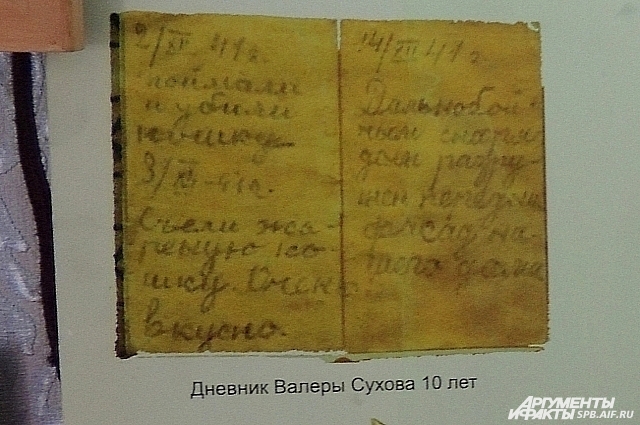 2/XI 41 г.
поймали
и убили
кошку
3/XI-41г.
Съели жа-
реную ко-
шку. Очень
вкусно.
14/XII 41 г.
Дальнобой-
ным снаря-
дом разру-
шен
фасад на-
шего дома
Дневник Валеры Сухова 10 лет
АРГУМЕНТЫ
И ФАКТЫ SPB.AIF.RU